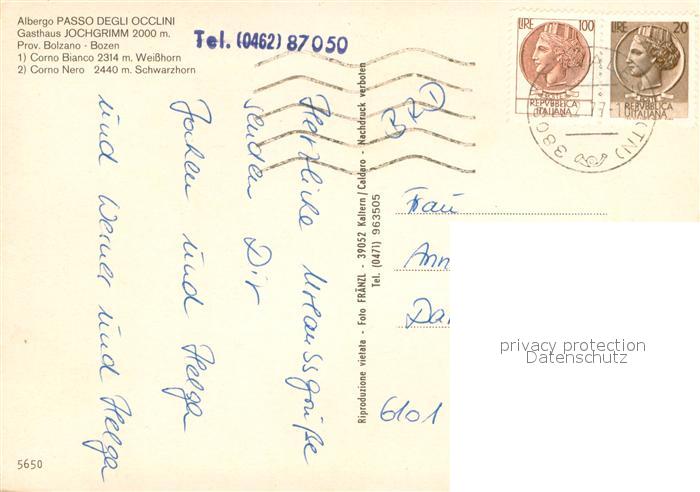 Albergo PASSO DEGLI OCCLINI
Gasthaus JOCHGRIMM 2000 m.
Prov. Bolzano - Bozen
1) Corno Bianco 2314 m. Weißhorn
2) Corno Nero 2440 m. Schwarzhorn
Tel. (0462) 87050
LIRE 100
REPVBBLICA
ITALIANA
LIRE 20
REPVBBLICA
D'ITALIANA
(TN)
380
Herzliche Urlaubsgrüße
senden Dir
und Helga
und Werner und Helga
Riproduzione vietata - Foto FRÄNZL - 39052 Kaltern/Caldaro - Nachdruck verboten
Tel. (0471) 963505
Frau
Ann
6101
privacy protection
Datenschutz
5650